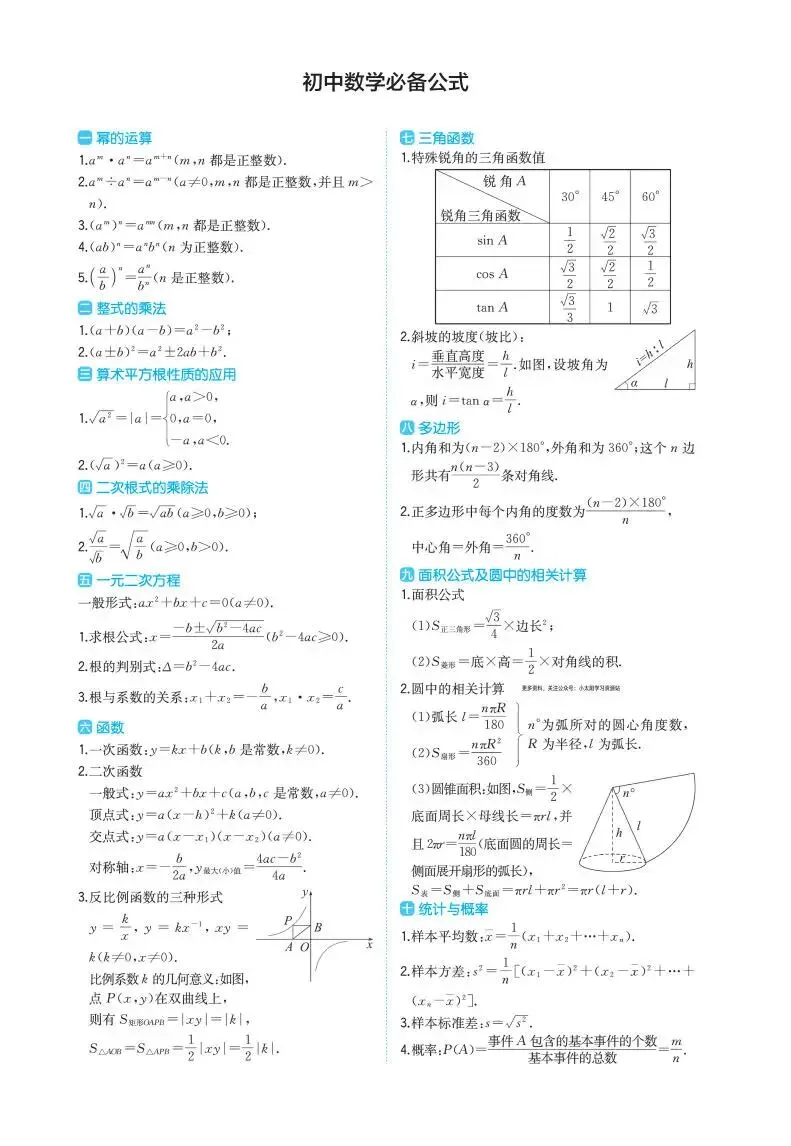 初中数学必备公式
一 幂的运算
1.aᵐ·aⁿ=aᵐ⁺ⁿ(m,n 都是正整数).
2.aᵐ÷aⁿ=aᵐ⁻ⁿ(a≠0,m,n 都是正整数,并且 m>
n).
3.(aᵐ)ⁿ=aⁿᵐ(m,n 都是正整数).
4.(ab)ⁿ=aⁿbⁿ(n 为正整数).
5.(a/b)ⁿ=aⁿ/bⁿ(n 是正整数).
二 整式的乘法
1.(a+b)(a-b)=a²-b²;
2.(a±b)²=a²±2ab+b².
三 算术平方根性质的应用
1.√a²=|a|={a,a>0,
0,a=0,
-a,a<0.
2.(√a)²=a(a≥0).
四 二次根式的乘除法
1.√a·√b=√ab(a≥0,b≥0);
2.√a/√b=√(a/b)(a≥0,b>0).
五 一元二次方程
一般形式:ax²+bx+c=0(a≠0).
1.求根公式:x=(-b±√(b²-4ac))/2a(b²-4ac≥0).
2.根的判别式:Δ=b²-4ac.
3.根与系数的关系:x₁+x₂=-b/a,x₁·x₂=c/a.
六 函数
1.一次函数:y=kx+b(k,b 是常数,k≠0).
2.二次函数
一般式:y=ax²+bx+c(a,b,c 是常数,a≠0).
顶点式:y=a(x-h)²+k(a≠0).
交点式:y=a(x-x₁)(x-x₂)(a≠0).
对称轴:x=-b/2a,y最大(小)值=(4ac-b²)/4a.
3.反比例函数的三种形式
y=k/x,y=kx⁻¹,xy=
k(k≠0,x≠0).
比例系数 k 的几何意义:如图,
点 P(x,y)在双曲线上,
则有 S矩形OAPB=|xy|=|k|,
S△AOB=S△APB=1/2|xy|=1/2|k|.
y
P
B
A O
x
七 三角函数
1.特殊锐角的三角函数值
锐角 A
锐角三角函数
30° 45° 60°
sin A 1/2 √2/2 √3/2
cos A √3/2 √2/2 1/2
tan A √3/3 1 √3
2.斜坡的坡度(坡比):
i=垂直高度/水平宽度=h/l.如图,设坡角为
α,则 i=tan α=h/l.
i=h:l
h
α
l
八 多边形
1.内角和为(n-2)×180°,外角和为 360°;这个 n 边
形共有n(n-3)/2条对角线.
2.正多边形中每个内角的度数为(n-2)×180°/n,
中心角=外角=360°/n.
九 面积公式及圆中的相关计算
1.面积公式
(1)S正三角形=√3/4×边长²;
(2)S菱形=底×高=1/2×对角线的积.
2.圆中的相关计算
更多资料，关注公众号：小太阳学习资源站
(1)弧长 l=nπR/180
(2)S扇形=nπR²/360
n°为弧所对的圆心角度数,
R 为半径,l 为弧长.
(3)圆锥面积:如图,S侧=1/2×
底面周长×母线长=πrl,并
且 2πr=nπl/180(底面圆的周长=
侧面展开扇形的弧长),
S表=S侧+S底面=πrl+πr²=πr(l+r).
n°
h
l
r
十 统计与概率
1.样本平均数:x̄=1/n(x₁+x₂+…+xₙ).
2.样本方差:s²=1/n[(x₁-x̄)²+(x₂-x̄)²+…+
(xₙ-x̄)²].
3.样本标准差:s=√s².
4.概率:P(A)=事件 A 包含的基本事件的个数/基本事件的总数=m/n.